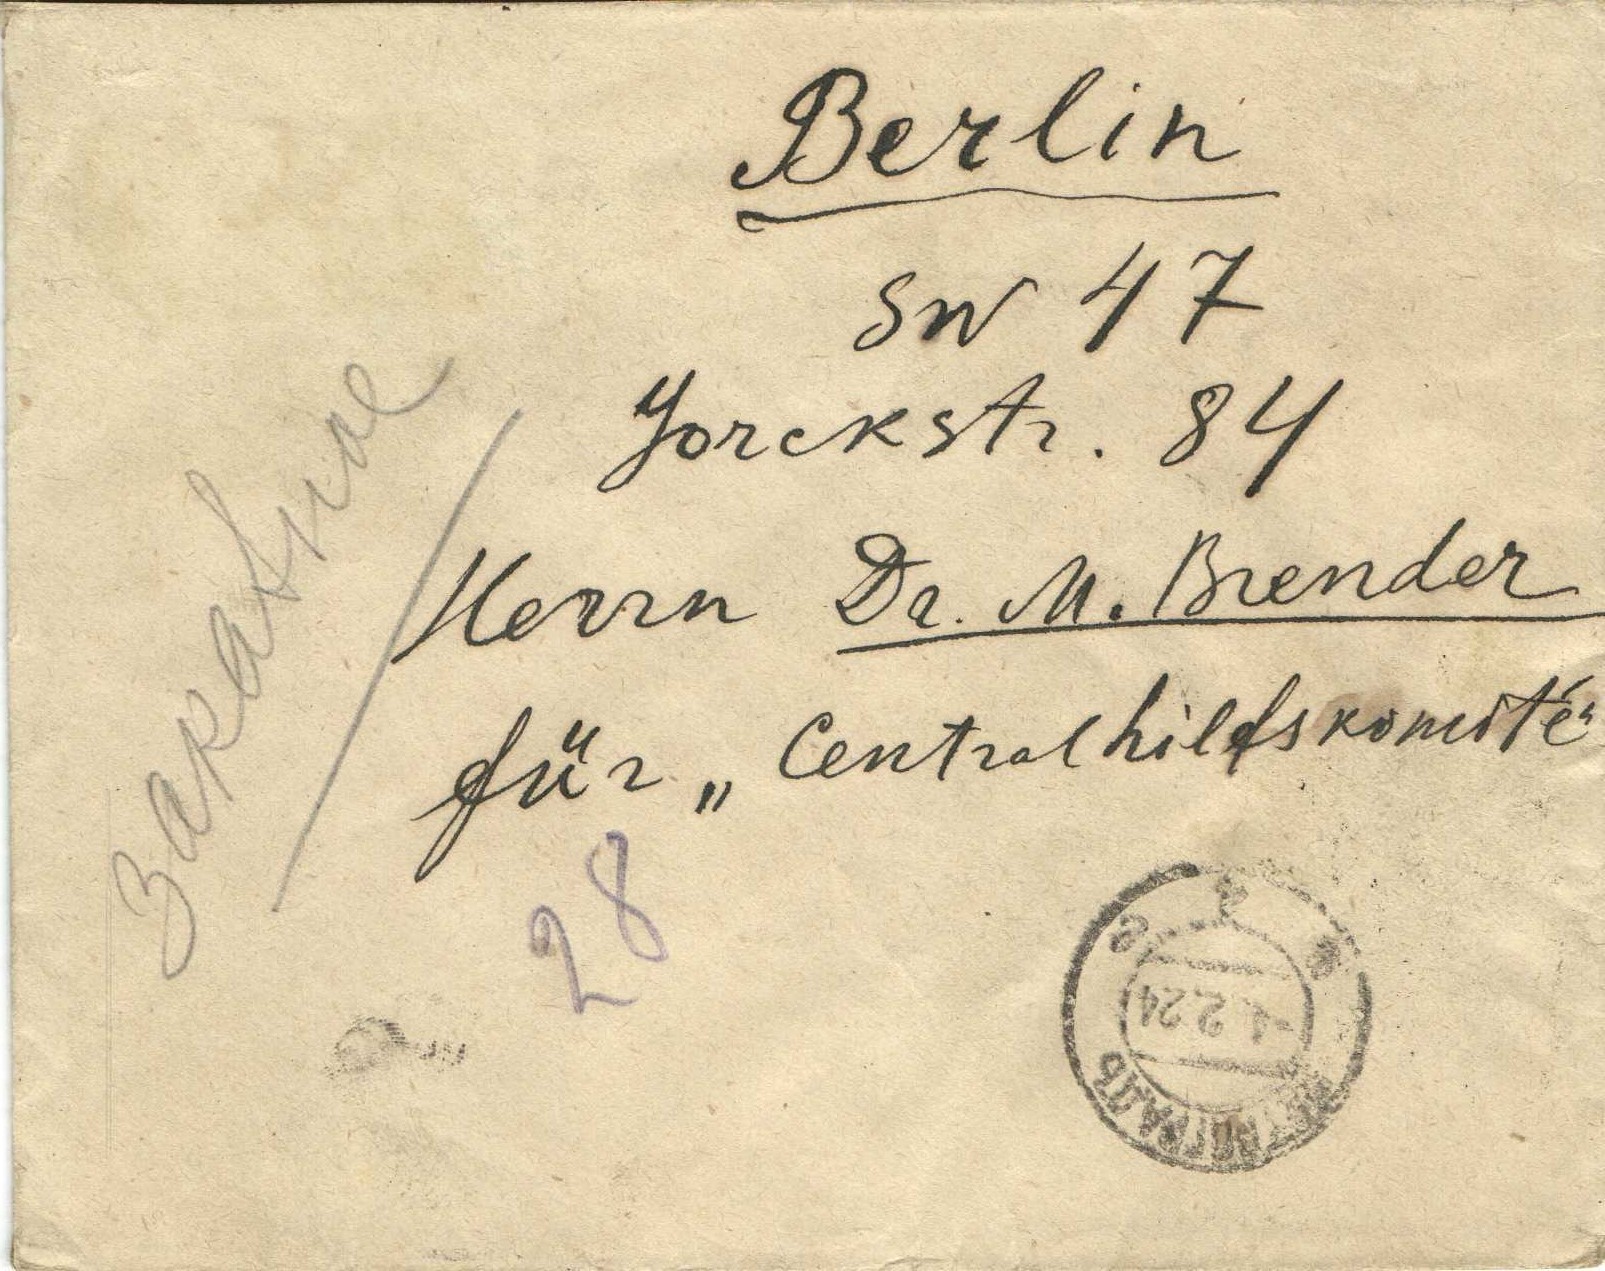 Berlin
SW 47
Yorckstr. 84
Herrn Dr. M. Brender
für „Centralhilfskomité“
Заказное
28
ПЕТРОГРАДЪ
-4.2.24